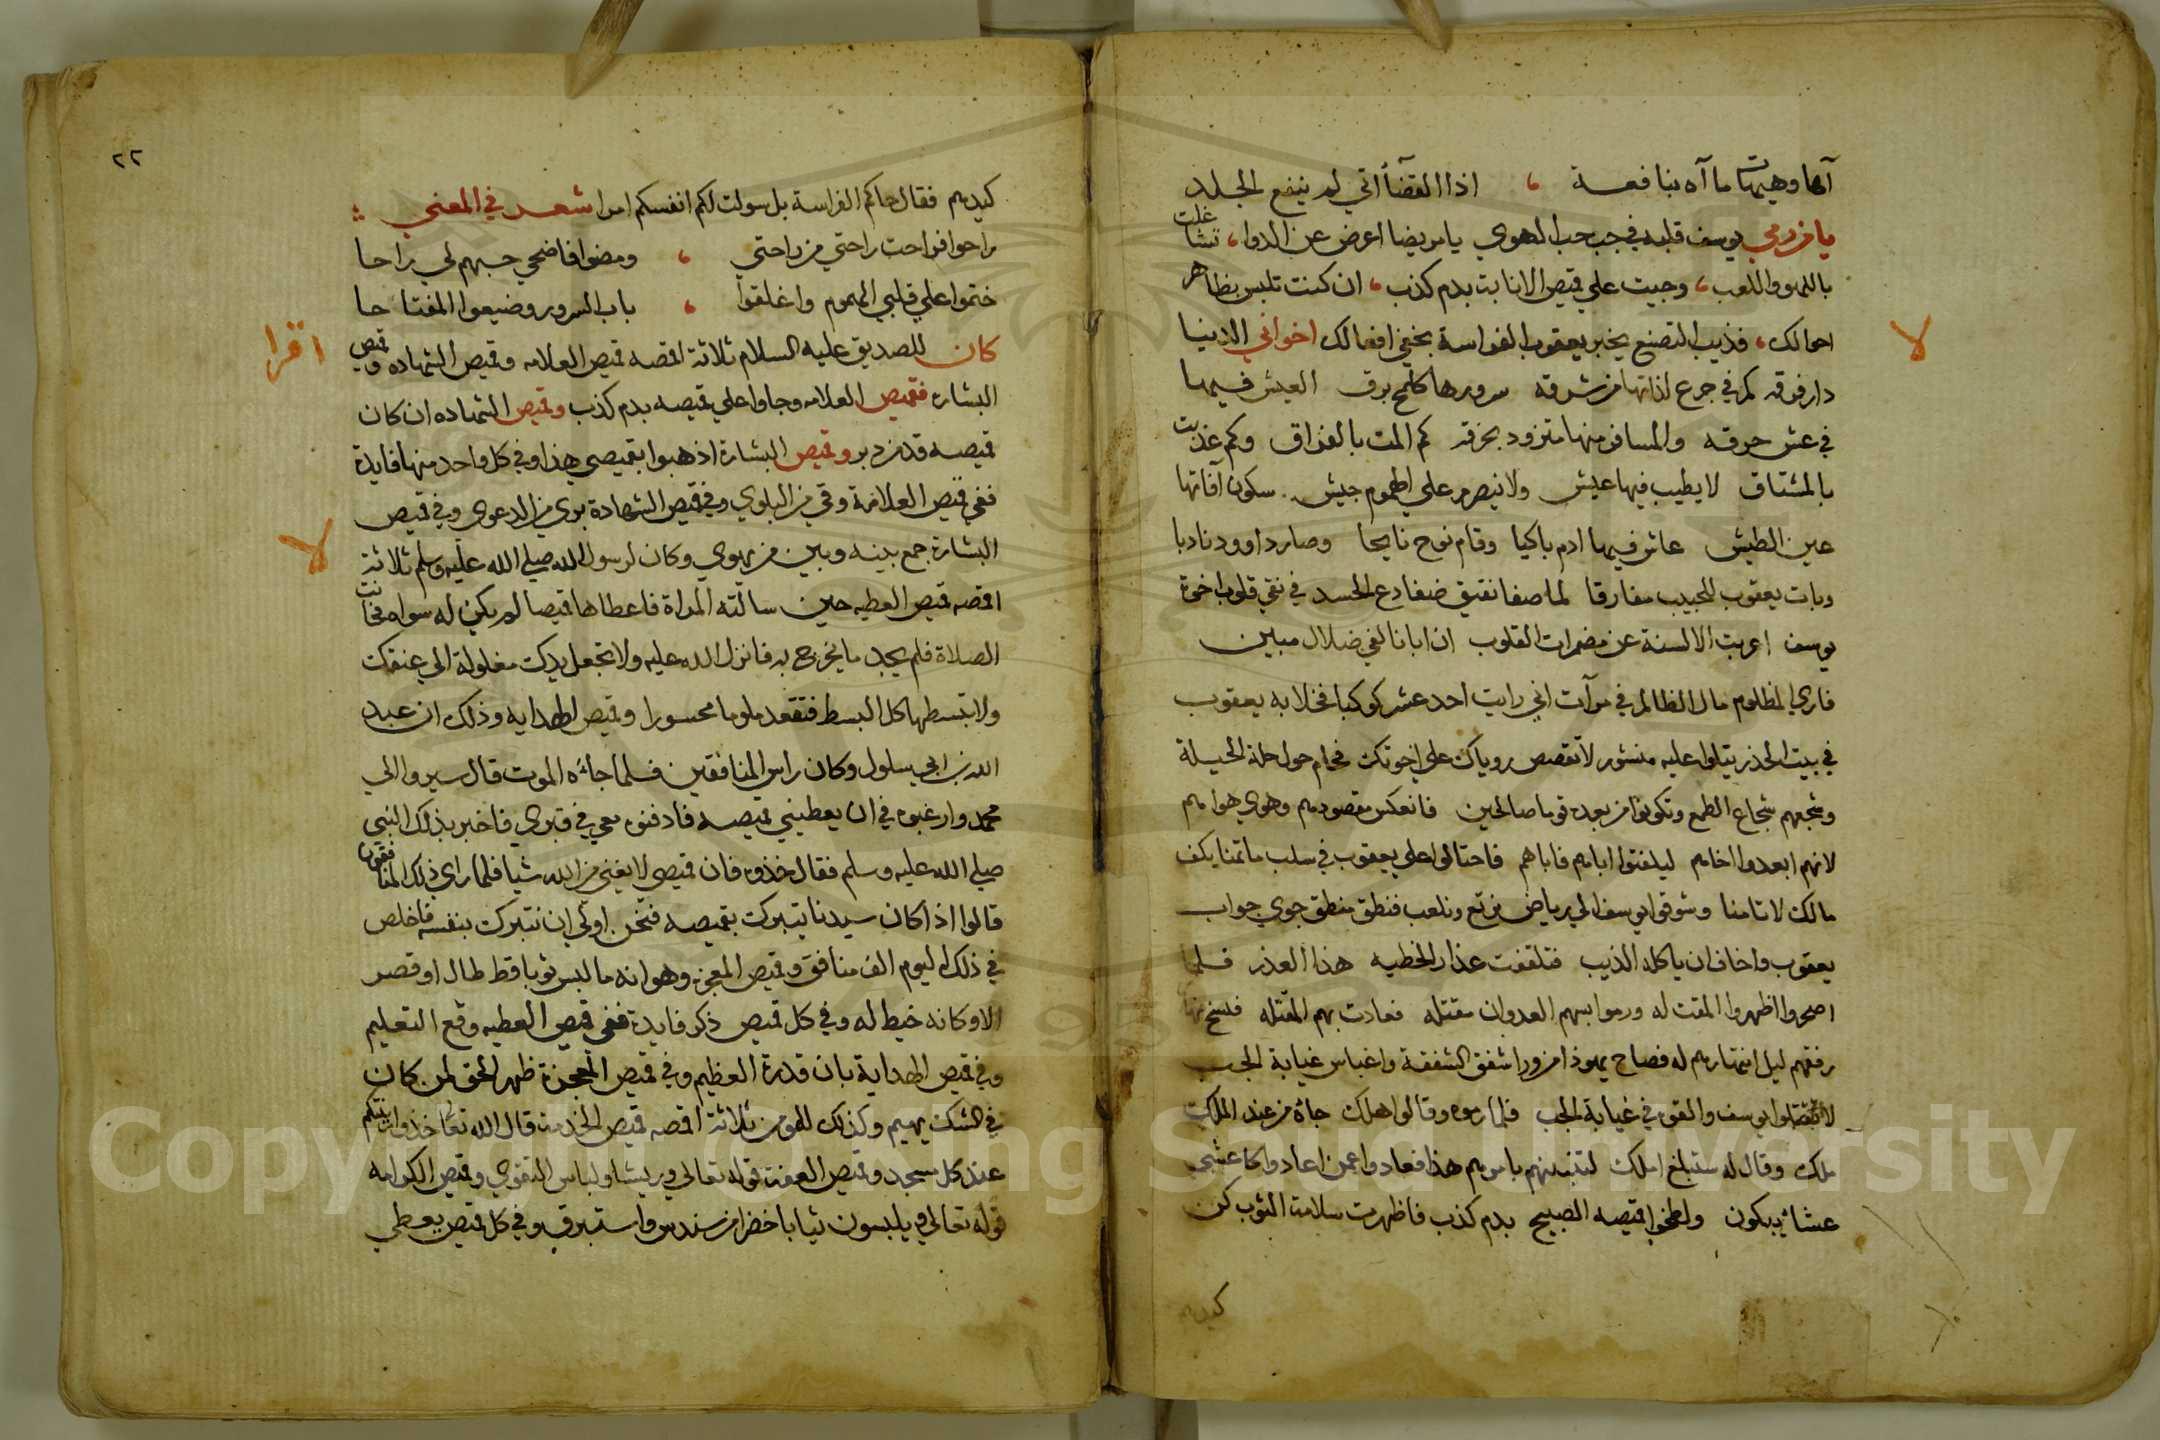 آها وهيهات ما آه بنافعة ، اذا القضأ اتي لم ينفع الجلد
يا من رمي يوسف قلبه في جب حب الهوي يا مريضا اعرض عن الدوا ، تشاغلت
باللهو واللعب ، وجيت علي قميص الانابت بدم كذب ، ان كنت تلبس بظاهر
احوالك ، فذيب التصنع يخبر يعقوب الفراسة بخفي افعالك اخواني الدنيا
دار فرقه كم في جرع لذاتها من شرقه سرورها كلمح برق العيش فيها
في عش حرقه والمسافر منها متزود بخرقه كم المت بالفراق وكم عذبت
بالمشتاق لا يطيب فيها عيش ولا ينصرم علي الهموم جيش سكون آفاتها
عين الطيش عاش فيها ادم باكيا وقام نوح نايحا وصار داوود نادبا
وبات يعقوب للحبيب مفارقا لما صفا نقيق ضفادع الحسد في نقي قلوب اخوة
يوسف اعربت الالسنة عن مضمرات القلوب ان ابانا لفي ضلال مبين
فاري المظلوم مال الظالم في مرآت اني رايت احد عشر كوكبا فخلا به يعقوب
في بيت الحذر يتلوا عليه منشور لا تقصص روياك علي اخوتك فحام حول حلة الحيلة
وشجعهم شجاع الطمع وتكونوا من بعده قوما صالحين فانعكس مقصودهم وهوي هواهم
لانهم ابعدوا اخاهم ليلفتوا اباهم فاباهم فاحتالوا علي يعقوب في سلب ماتمنا يكف
مالك لا تامنا وشوقوا يوسف الي رياض نرتع ونلعب فنطق منطق جوي جواب
يعقوب واخاف ان ياكله الذيب فتلقفت عذار الخطيه هذا العذر فلما
اصحروا اظهروا المقت له ورموا بسهم العدوان مقتله فعادت بهم المقتله فنسخ نهار
رفقهم ليل انتهارهم له فصاح يهوذا من ورا شفق الشفقة واغباس غيابة الجب
لا تقتلوا يوسف والقوه في غيابة الجب فلما رموه وقالوا هلك جاه من عند الملك
ملك وقال له ستبلغ املك لتنبينهم بامرهم هذا فعادوا عمن اعادوا كاعشي
عشاء يبكون ولطخوا قميصه الصبيح بدم كذب فاظهرت سلامة الثوب كن
كيدهم
٢٢
كيدهم فقال حاكم الفراسة بل سولت لكم انفسكم امرا شعر في المعني
راحوا فراحت راحتي من راحتي ، ومضوا فاضحي حبهم لي راحا
ختموا علي قلبي الهموم واغلقوا ، باب السرور وضيعوا المفتاحا
اقرا
كان للصديق عليه السلام ثلاثة اقمصه قميص العلامه وقميص الشهاده وقميص
البشاره فقميص العلامه وجاوا علي قميصه بدم كذب وقميص الشهاده ان كان
قميصه قد من دبر وقميص البشارة اذهبوا بقميصي هذا وفي كل واحد منها فايدة
ففي قميص العلامة وقي من البلوي وفي قميص الشهادة بري من الدعوي وفي قميص
البشارة جمع بينه وبين من يهوي وكان لرسول الله صلي الله عليه وسلم ثلاثة
لا
اقمصه قميص العطيه حين سالته المراة فاعطاها قميصا لم يكن له سواه فحانت
الصلاة فلم يجد ما يخرج به فانزل الله عليه ولا تجعل يدك مغلولة الي عنقك
ولا تبسطها كل البسط فتقعد ملوما محسورا وقميص الهدايه وذلك ان عبد
الله بن ابي سلول وكان راس المنافقين فلما جاءه الموت قال سيروا الي
محمد وارغبوه في ان يعطيني قميصه فادفنوه معي في قبري فاخبر بذلك النبي
صلي الله عليه وسلم فقال خذوه فان قميصي لا يغني من الله شيا فلما راي ذلك المنافقون
قالوا اذا كان سيدنا يتبرك بقميصه فنحن اولي ان نتبرك بنفسه فاخلص
في ذلك اليوم الف منافق وقميص المعجزه وهو انه ما لبس ثوبا قط طال او قصر
الا وكانه خيط له وفي كل قميص ذكر فايدة ففي قميص العطيه وقع التعليم
وفي قميص الهداية بان قدرة العظيم وفي قميص المعجزة ظهر الحق لمن كان
في الشك يهيم وكذلك للمومن ثلاثة اقمصه قميص الخدمة قال الله تعا خذوا زينتكم
عند كل مسجد وقميص العفة قوله تعالي وريشا ولباس التقوي وقميص الكرامه
قوله تعالي ويلبسون ثيابا خضرا من سندس واستبرق وفي كل قميص يعطي
لا
Copyright © King Saud University